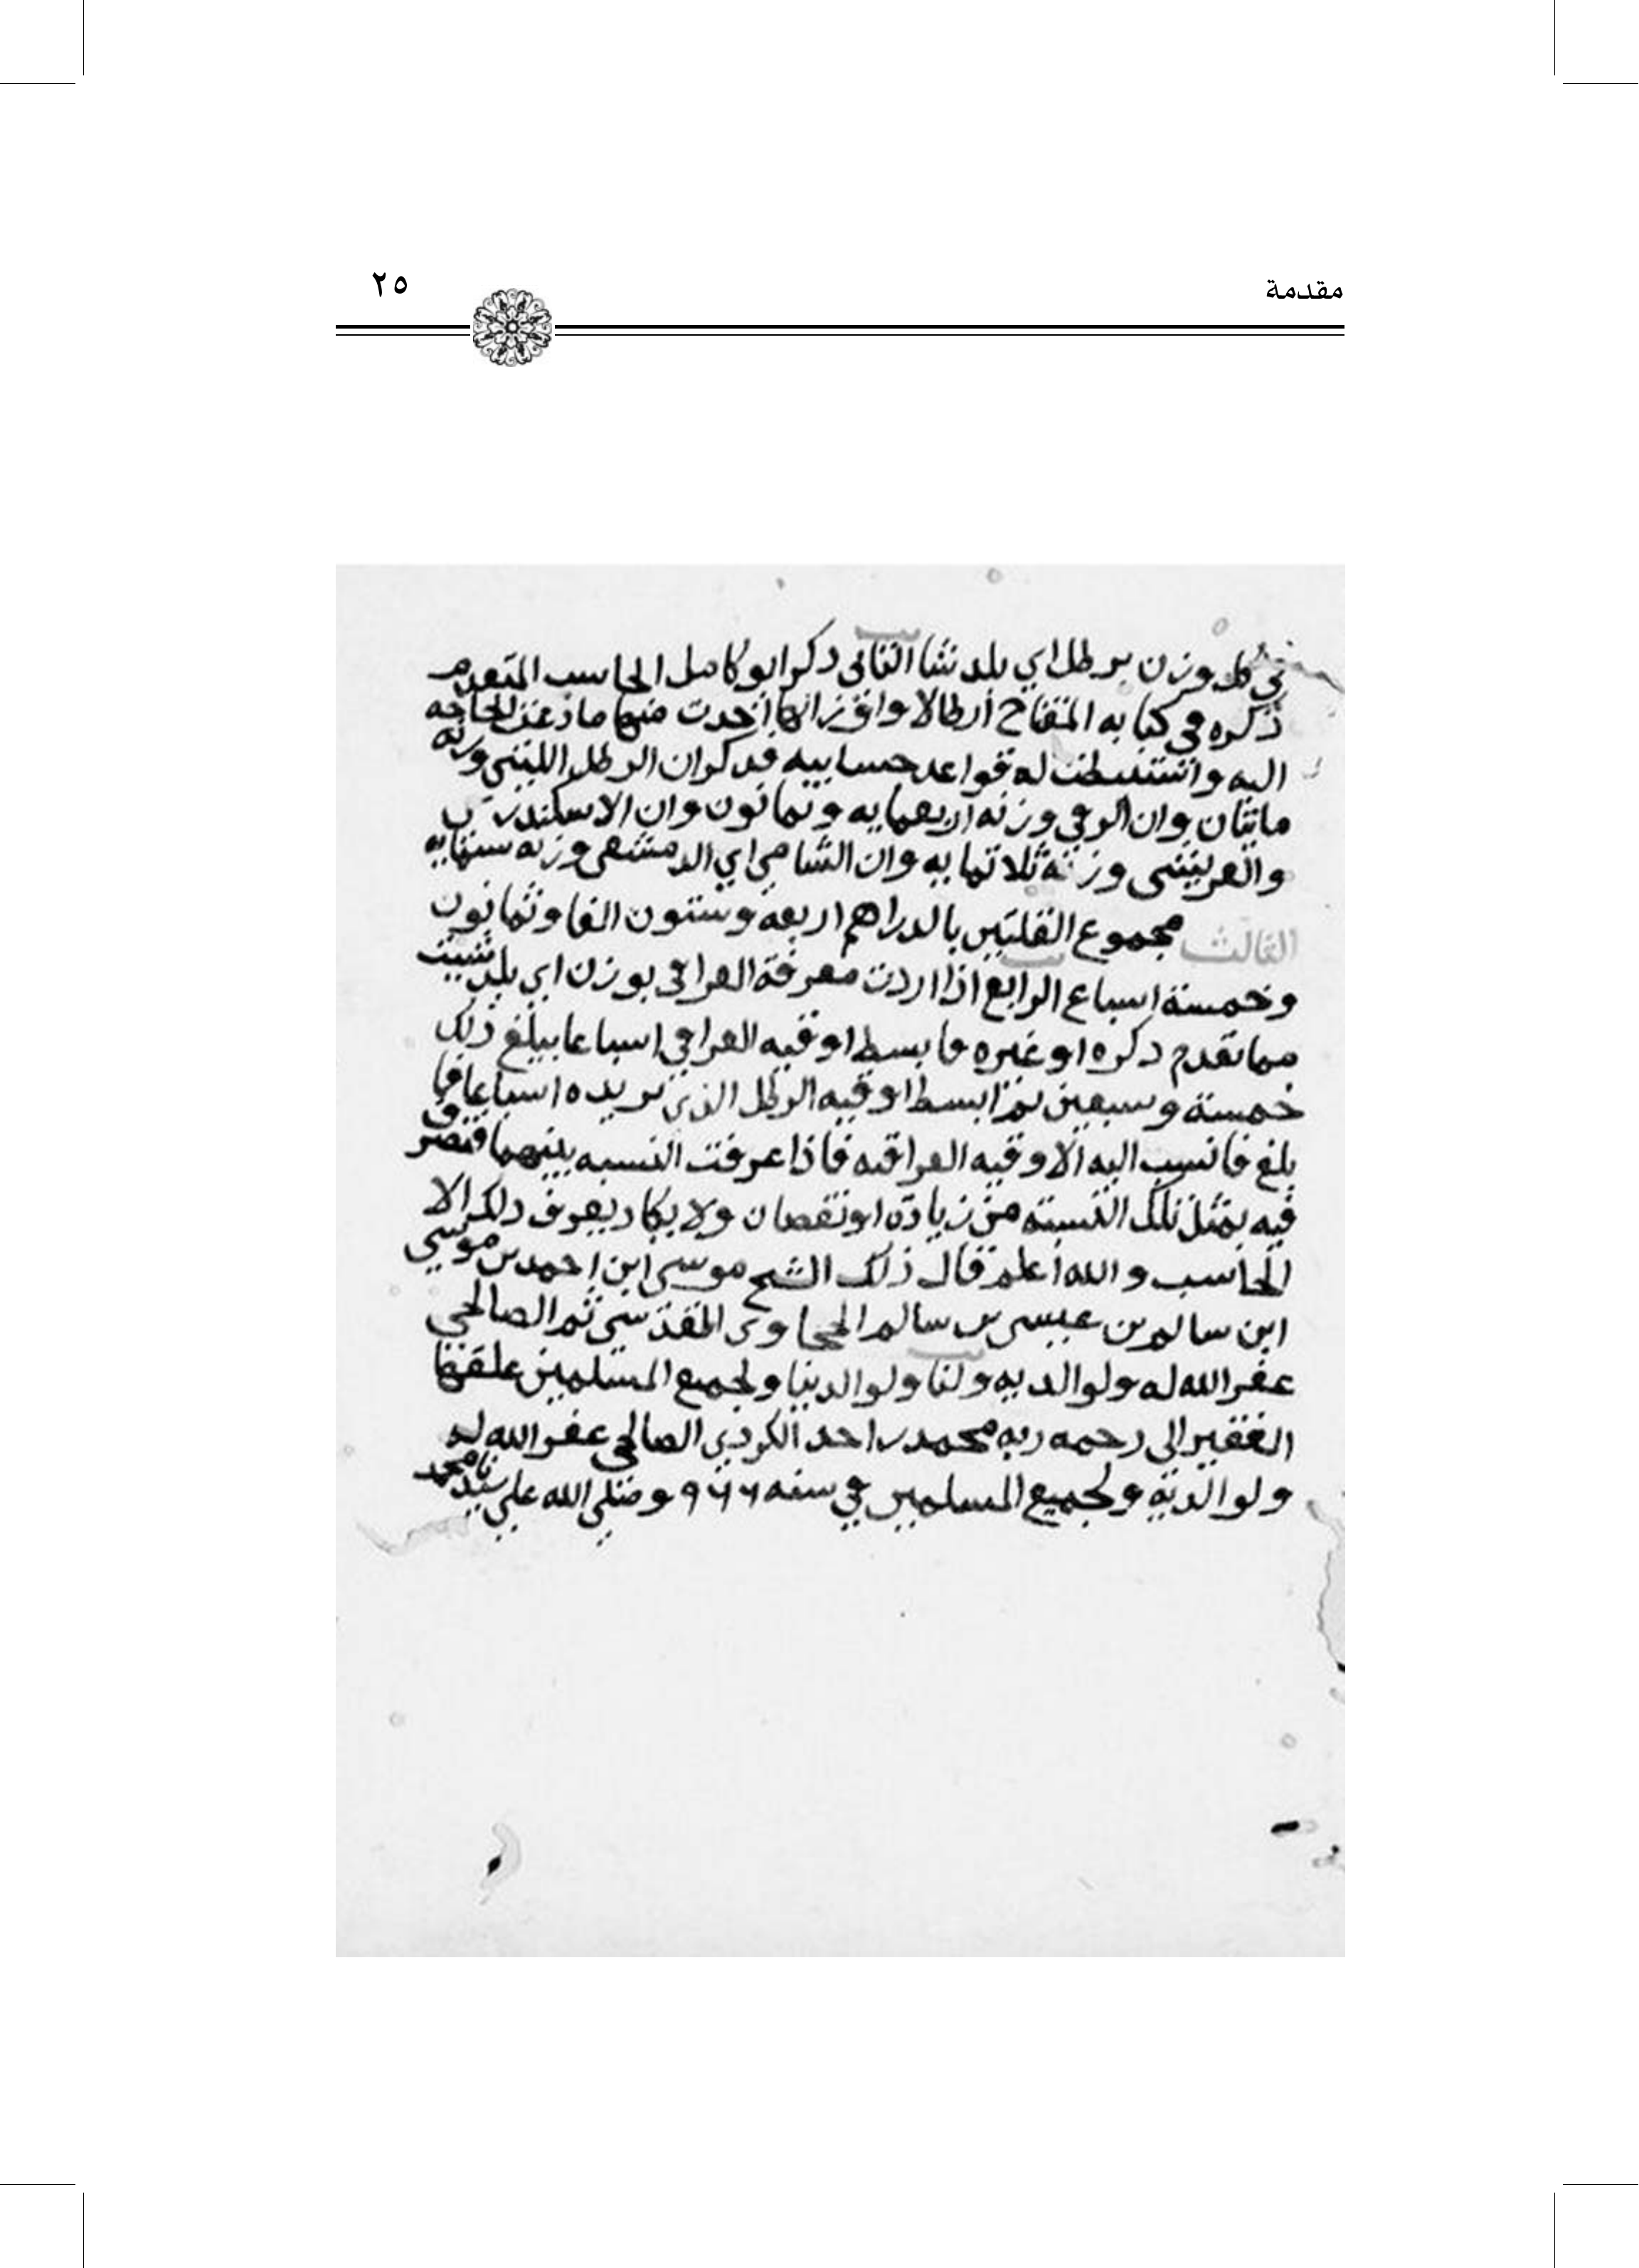 مقدمة
٢٥
في كل وزن برطل اي بلد شا الثاني ذكر ابو كامل الحاسب المتقدم
ذكره في كتابه المفتاح أرطالا واوزانها أخدت منها ما دعت الحاجه
اليه واستنبطت له قواعد حسابيه فدكر ان الرطل الليثي وزنه
مايتان وان الروحي وزنه اربعمايه وثمانون وان الاسكندري
والقريشي وزنه ثلاتمايه وان الشامي اي الدمشقي وزنه ستمايه
الثالث مجموع القلتين بالدراهم اربعة وستون الفا وثمانون
وخمسة اسباع الرابع اذا اردت معرفة العراقي بوزن اي بلد شيت
مما تقدم دكره او غيره فابسط اوقيه العراقي اسباعا يبلغ ذلك
خمسة وسبعين ثم ابسط اوقيه الرطل الذي تريده اسباعا فما
بلغ فانسب اليه الاوقيه العراقيه فاذا عرفت النسبه بينهما فتصرف
فيه بمثل تلك النسبه من زيادة او نقصان ولا يكاد يعرف دلك الا
الحاسب والله أعلم قال ذلك الشيخ موسى ابن احمد بن موسى
ابن سالم بن عيسى بن سالم الحجاوي المقدسي ثم الصالحي
عفر الله له ولوالديه ولنا ولوالدينا ولجميع المسلمين علقها
الفقير الى رحمه ربه محمد بن احمد الكردي الصالحي عفر الله له
ولوالديه ولجميع المسلمين في سنه ٩٦٦ وصلى الله على سيدنا محمد